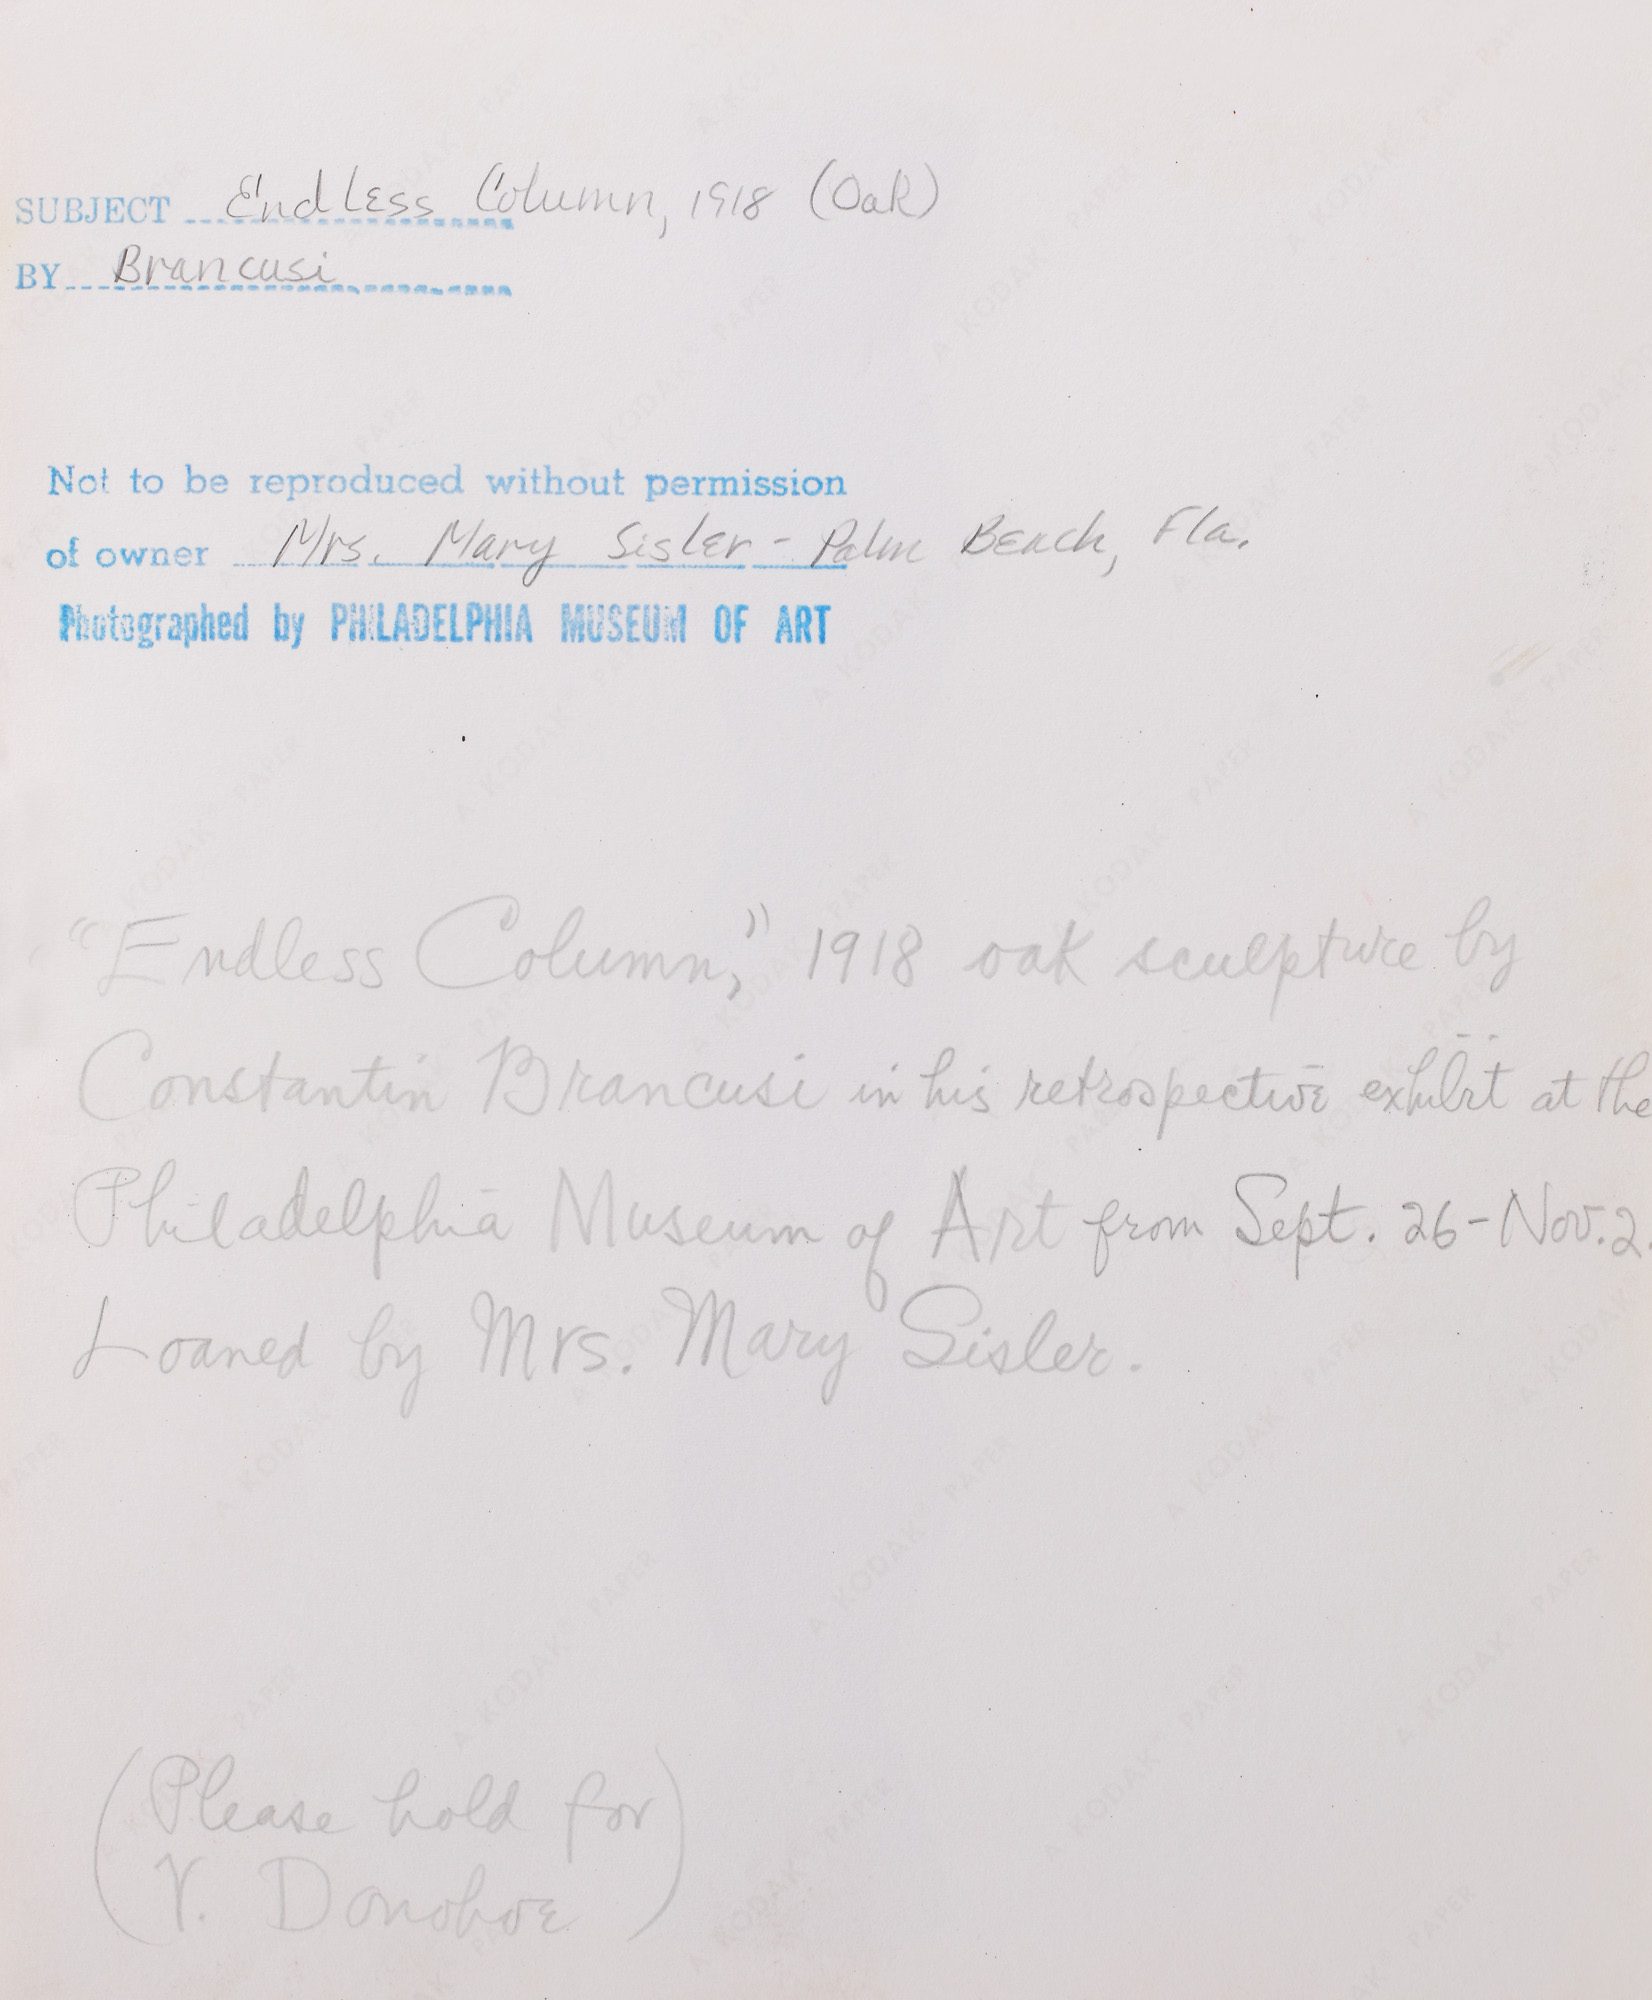 SUBJECT Endless Column, 1918 (Oak)
BY Brancusi
Not to be reproduced without permission
of owner Mrs. Mary Sisler - Palm Beach, Fla.
Photographed by PHILADELPHIA MUSEUM OF ART
"Endless Column," 1918 oak sculpture by
Constantin Brancusi in his retrospective exhibit at the
Philadelphia Museum of Art from Sept. 26-Nov. 2.
Loaned by Mrs. Mary Sisler.
(Please hold for
V. Donohoe)
A KODAK PAPER